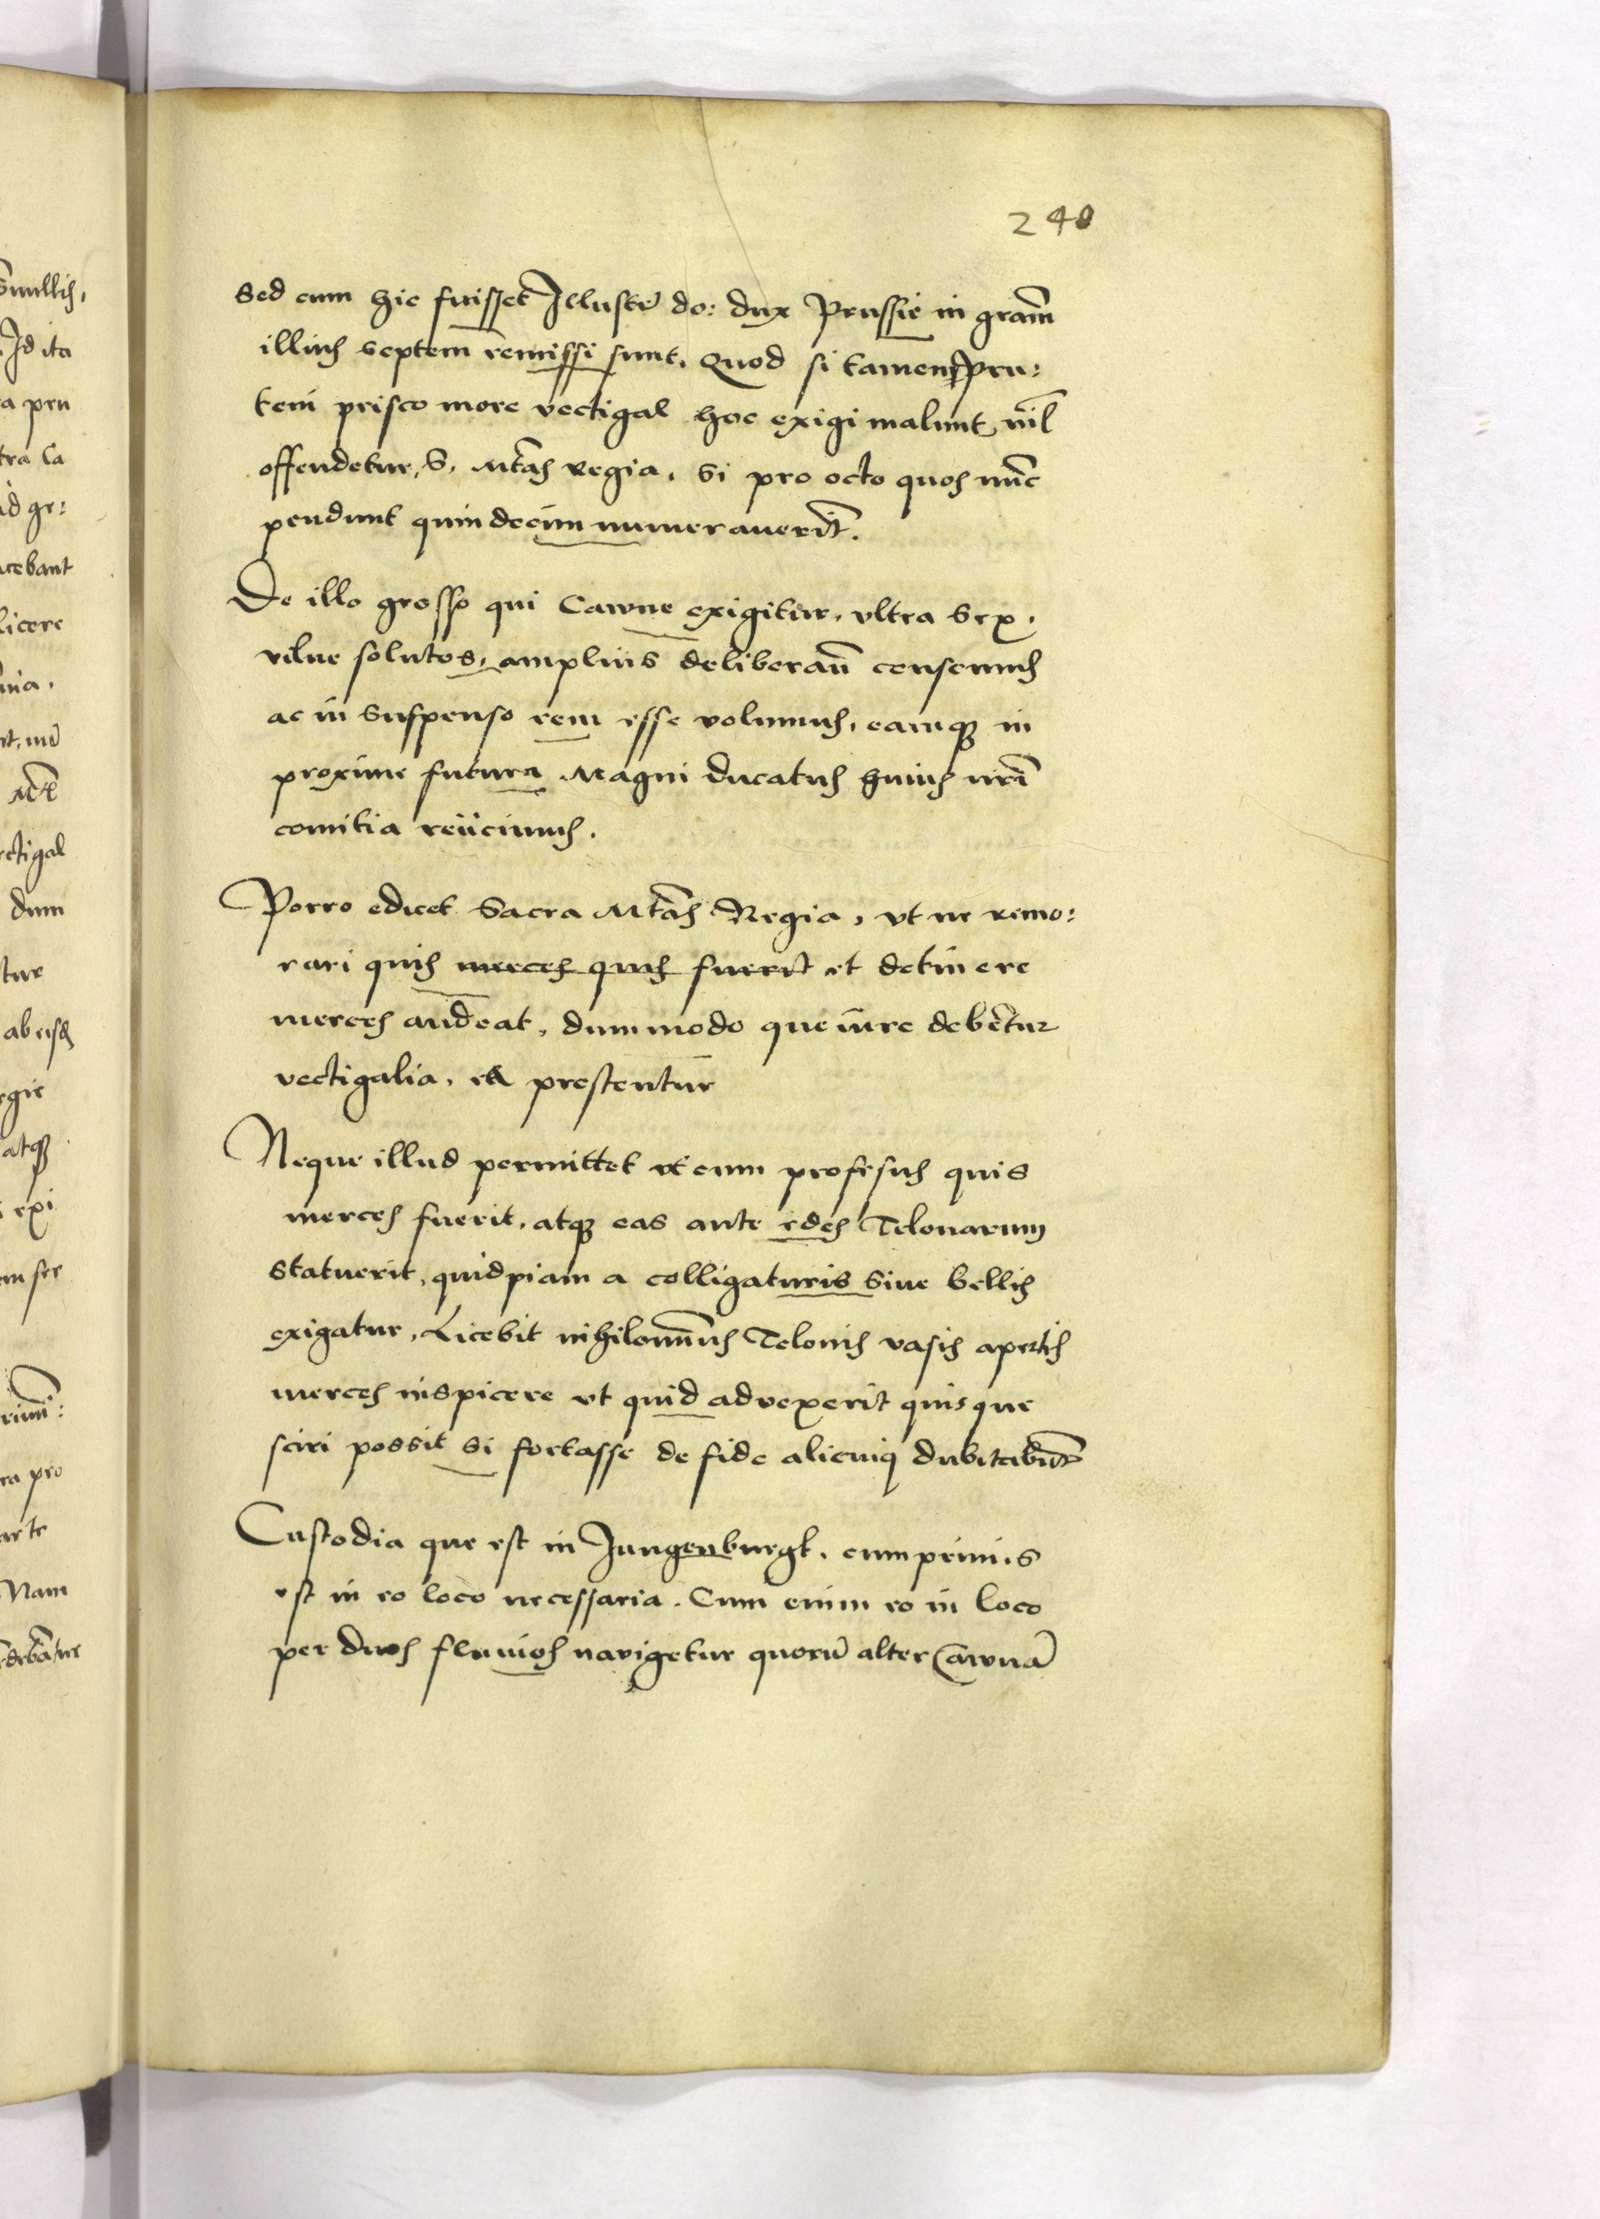 240
Sed cum hic fuisset Illustr̃ do: dux Prussie in gram̃
illius septem remissi sunt. Quod si tamen Pru:
teni prisco more vectigal hoc exigi malunt, nil̃
offendetur, S. Mtãs Regia, si pro octo quos nũc
pendunt quindecim numeraverĩt.
De illo grosso qui Cawne exigitur, ultra sex,
vilne solutos, amplius deliberañ censemus
ac in suspenso rem esse volumus, eamq3 in
proxime futura Magni ducatus huius nrĩ
comitia reiicimus.
Porro edicet Sacra Mtãs Regia, ut ne remo:
rari quis merces quis fuerit et detinere
merces audeat, dummodo que iure debẽtur
vectigalia, ea prestentur
Neque illud permittet ut cum professus quis
merces fuerit, atq3 eas ante edes Telonarum
statuerit, quidpiam a colligaturis sive bellis
exigatur, Licebit nihilominus Telonis vasis apertis
merces inspicere ut quid advexerit quisque
sciri possit si fortasse de fide alicuiq dubitabũt
Custodia que est in Jungenburgk, cumprimis
est in eo loco necessaria. Cum enim eo in loco
per duos fluvios navigetur quorũ alter Cawnã